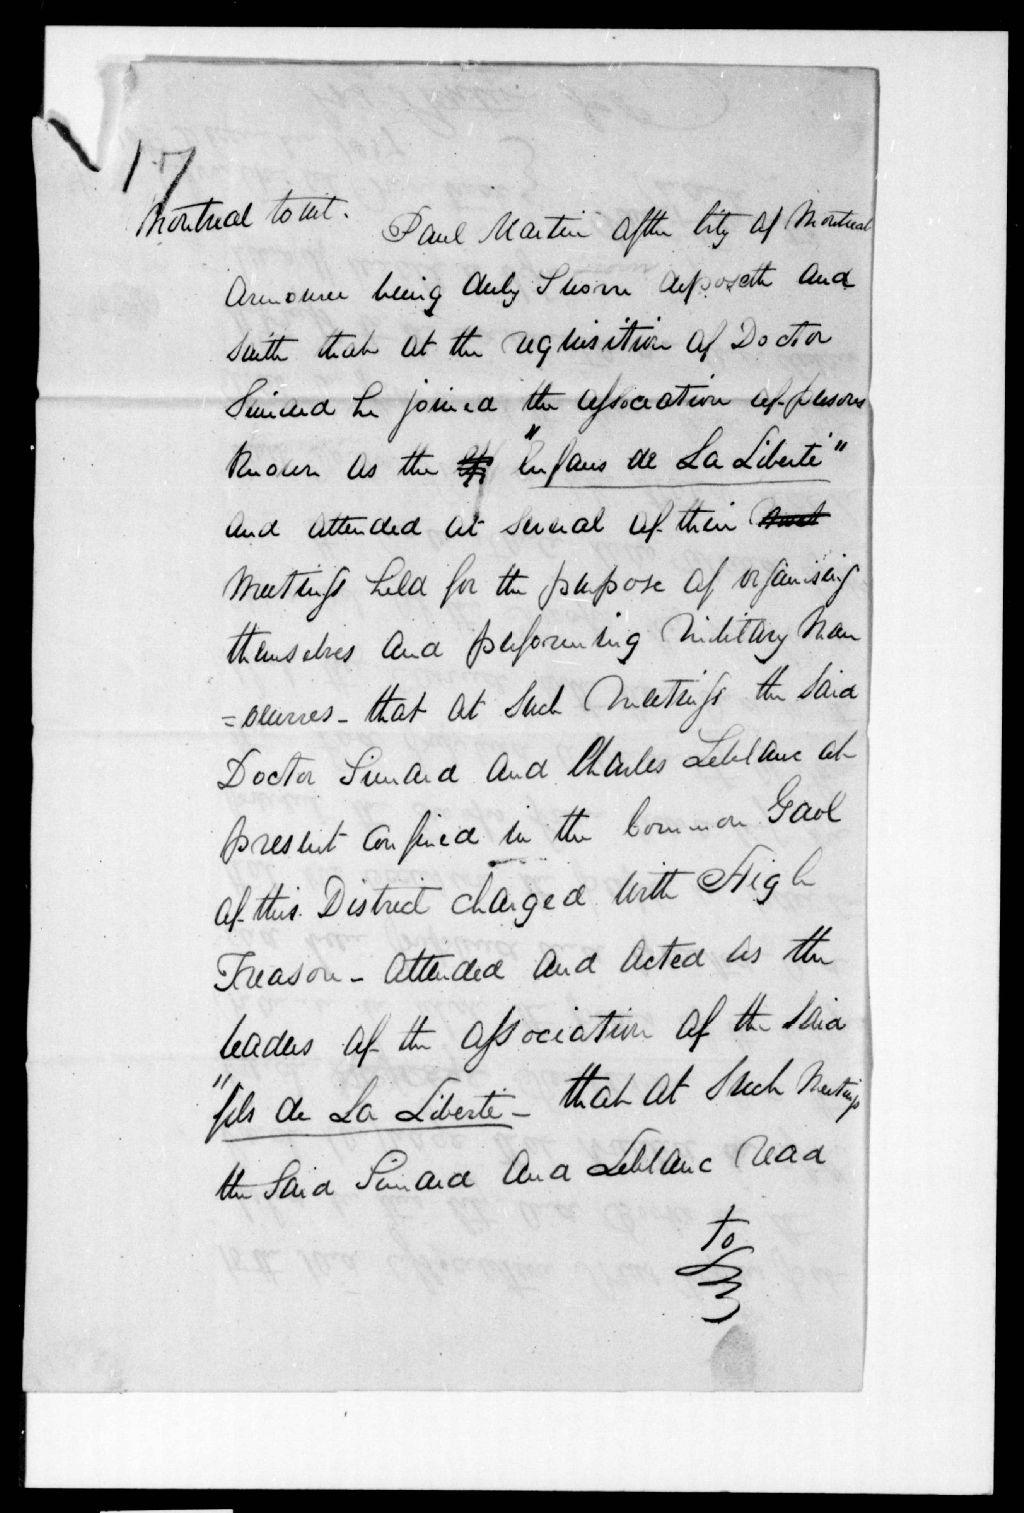 17
Montreal to wit. Paul Martin of the City of Montreal
Armourer being duly Sworn deposeth and
Saith that at the requisition of Doctor
Simard he joined the association of persons
Known as the "Enfans de La Liberté"
and attended at several of their
Meetings held for the purpose of organising
themselves and performing Military Man
=œuvres - that at Such Meetings the Said
Doctor Simard and Charles Leblanc at
present confined in the Common Gaol
of this District charged with High
Treason - attended and acted as the
leaders of the association of the Said
"fils de La Liberté - that at Such Meetings
the Said Simard and Leblanc read
to